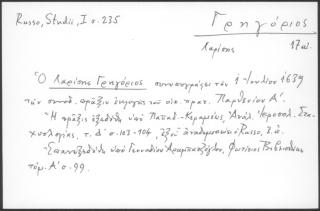 Russo, Studii, I σ. 235
Γρηγόριος
Λαρίσης 17 αι.
Ὁ Λαρίσης Γρηγόριος συνυπογράφει τὴν 1 Ἰουλίου 1639
τὴν συνοδ. πρᾶξιν ἐκλογῆς τοῦ οἰκ. πατρ. Παρθενίου Α΄.
- Ἡ πρᾶξις ἐξεδόθη ὑπὸ Παπαδ.-Κεραμέως, Ἀνάλ. Ἱεροσολ. Στα-
χυολογίας, τ. Δ΄ σ. 103-104, ἐξ οὗ ἀναδημοσιεύει ὁ Russo, ἔ.ἀ.
- Ἐπανεξεδόθη ὑπὸ Γενναδίου Ἀραμπατζόγλου, Φωτίειος Βιβλιοθήκη
τόμ. Α΄ σ. 99.